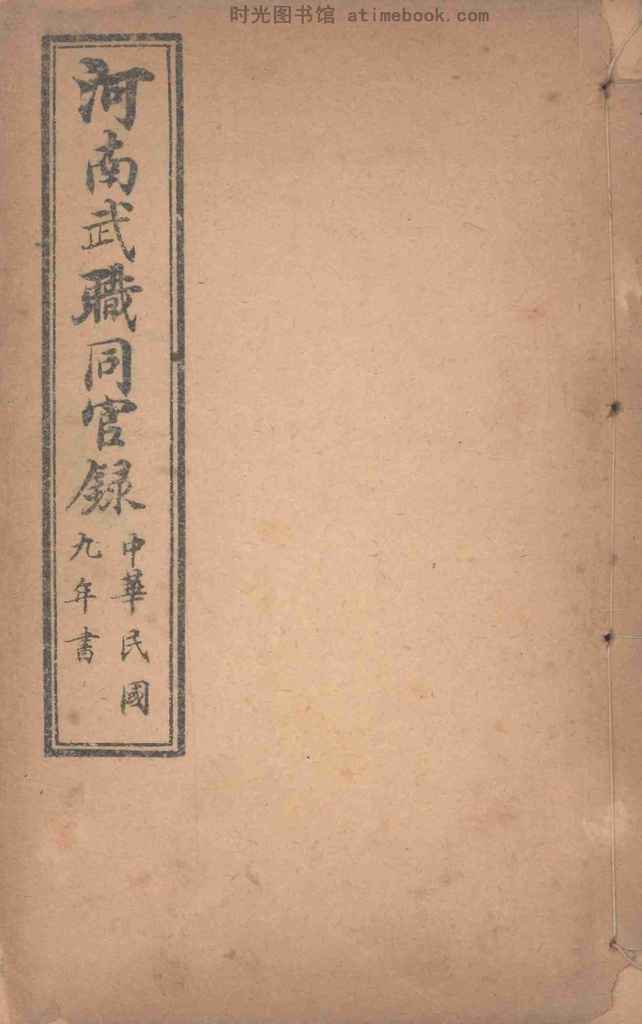 时光图书馆 atimebook.com
河南武職同官録
中華民國
九年書